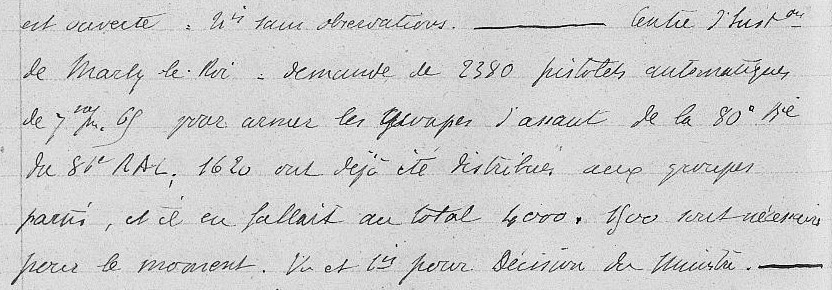 est ouverte. Tis sans observations. ——— Centre d'Inston
de Marly-le-Roi - demande de 2380 pistolets automatiques
de 7 m/m 65 pour armer les groupes d'assaut de la 80e Bie
du 86e RAL; 1620 ont déjà été distribués aux groupes
partis, et il en fallait au total 4000. 1500 sont nécessaires
pour le moment. Vu et tis pour Décision du Ministre. ———